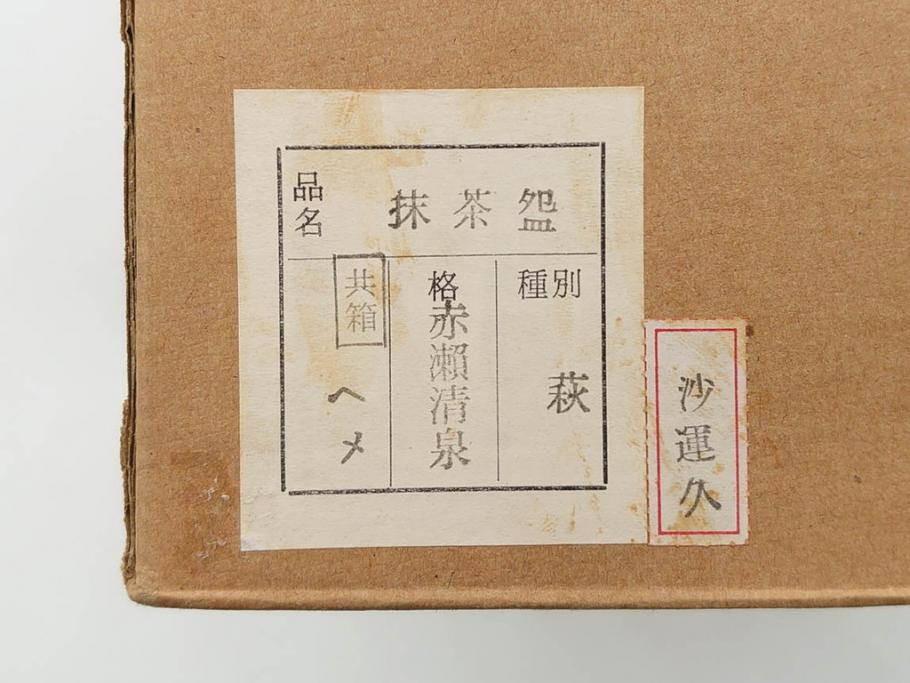 品名
抹茶盌
種別
萩
格
赤瀬清泉
共箱
ヘメ
沙運久